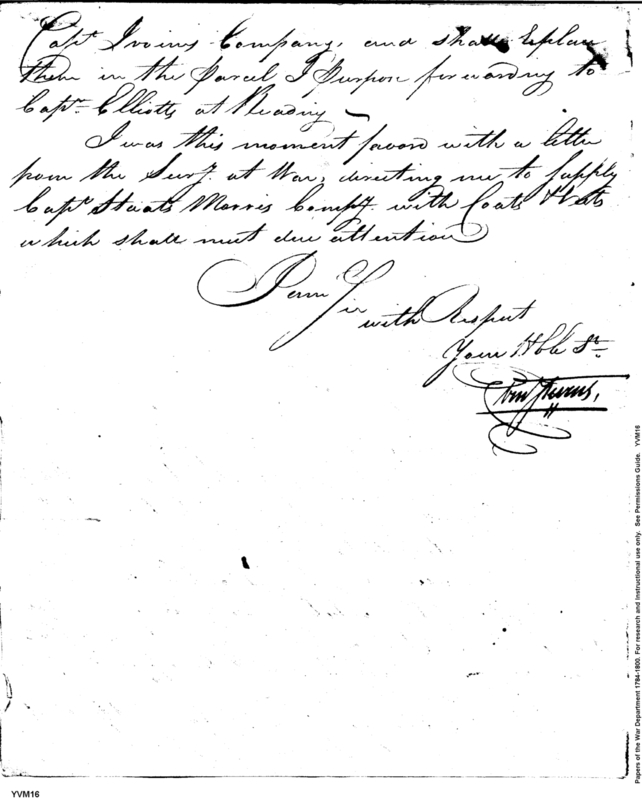 Capt. Irvins Company, and shall Explain
them in the Parcel I Purpose forwarding to
Captn. Elliotts at Reading
I was this moment favord with a letter
from the Secy. at War, directing me to Supply
Captn Staats Morris Compy. with Coats & Vests
which shall meet due attention
I am Sir
with Respect
Your Hble St
YVM16
Papers of the War Department 1784-1800. For research and instructional use only. See Permissions Guide. YVM16